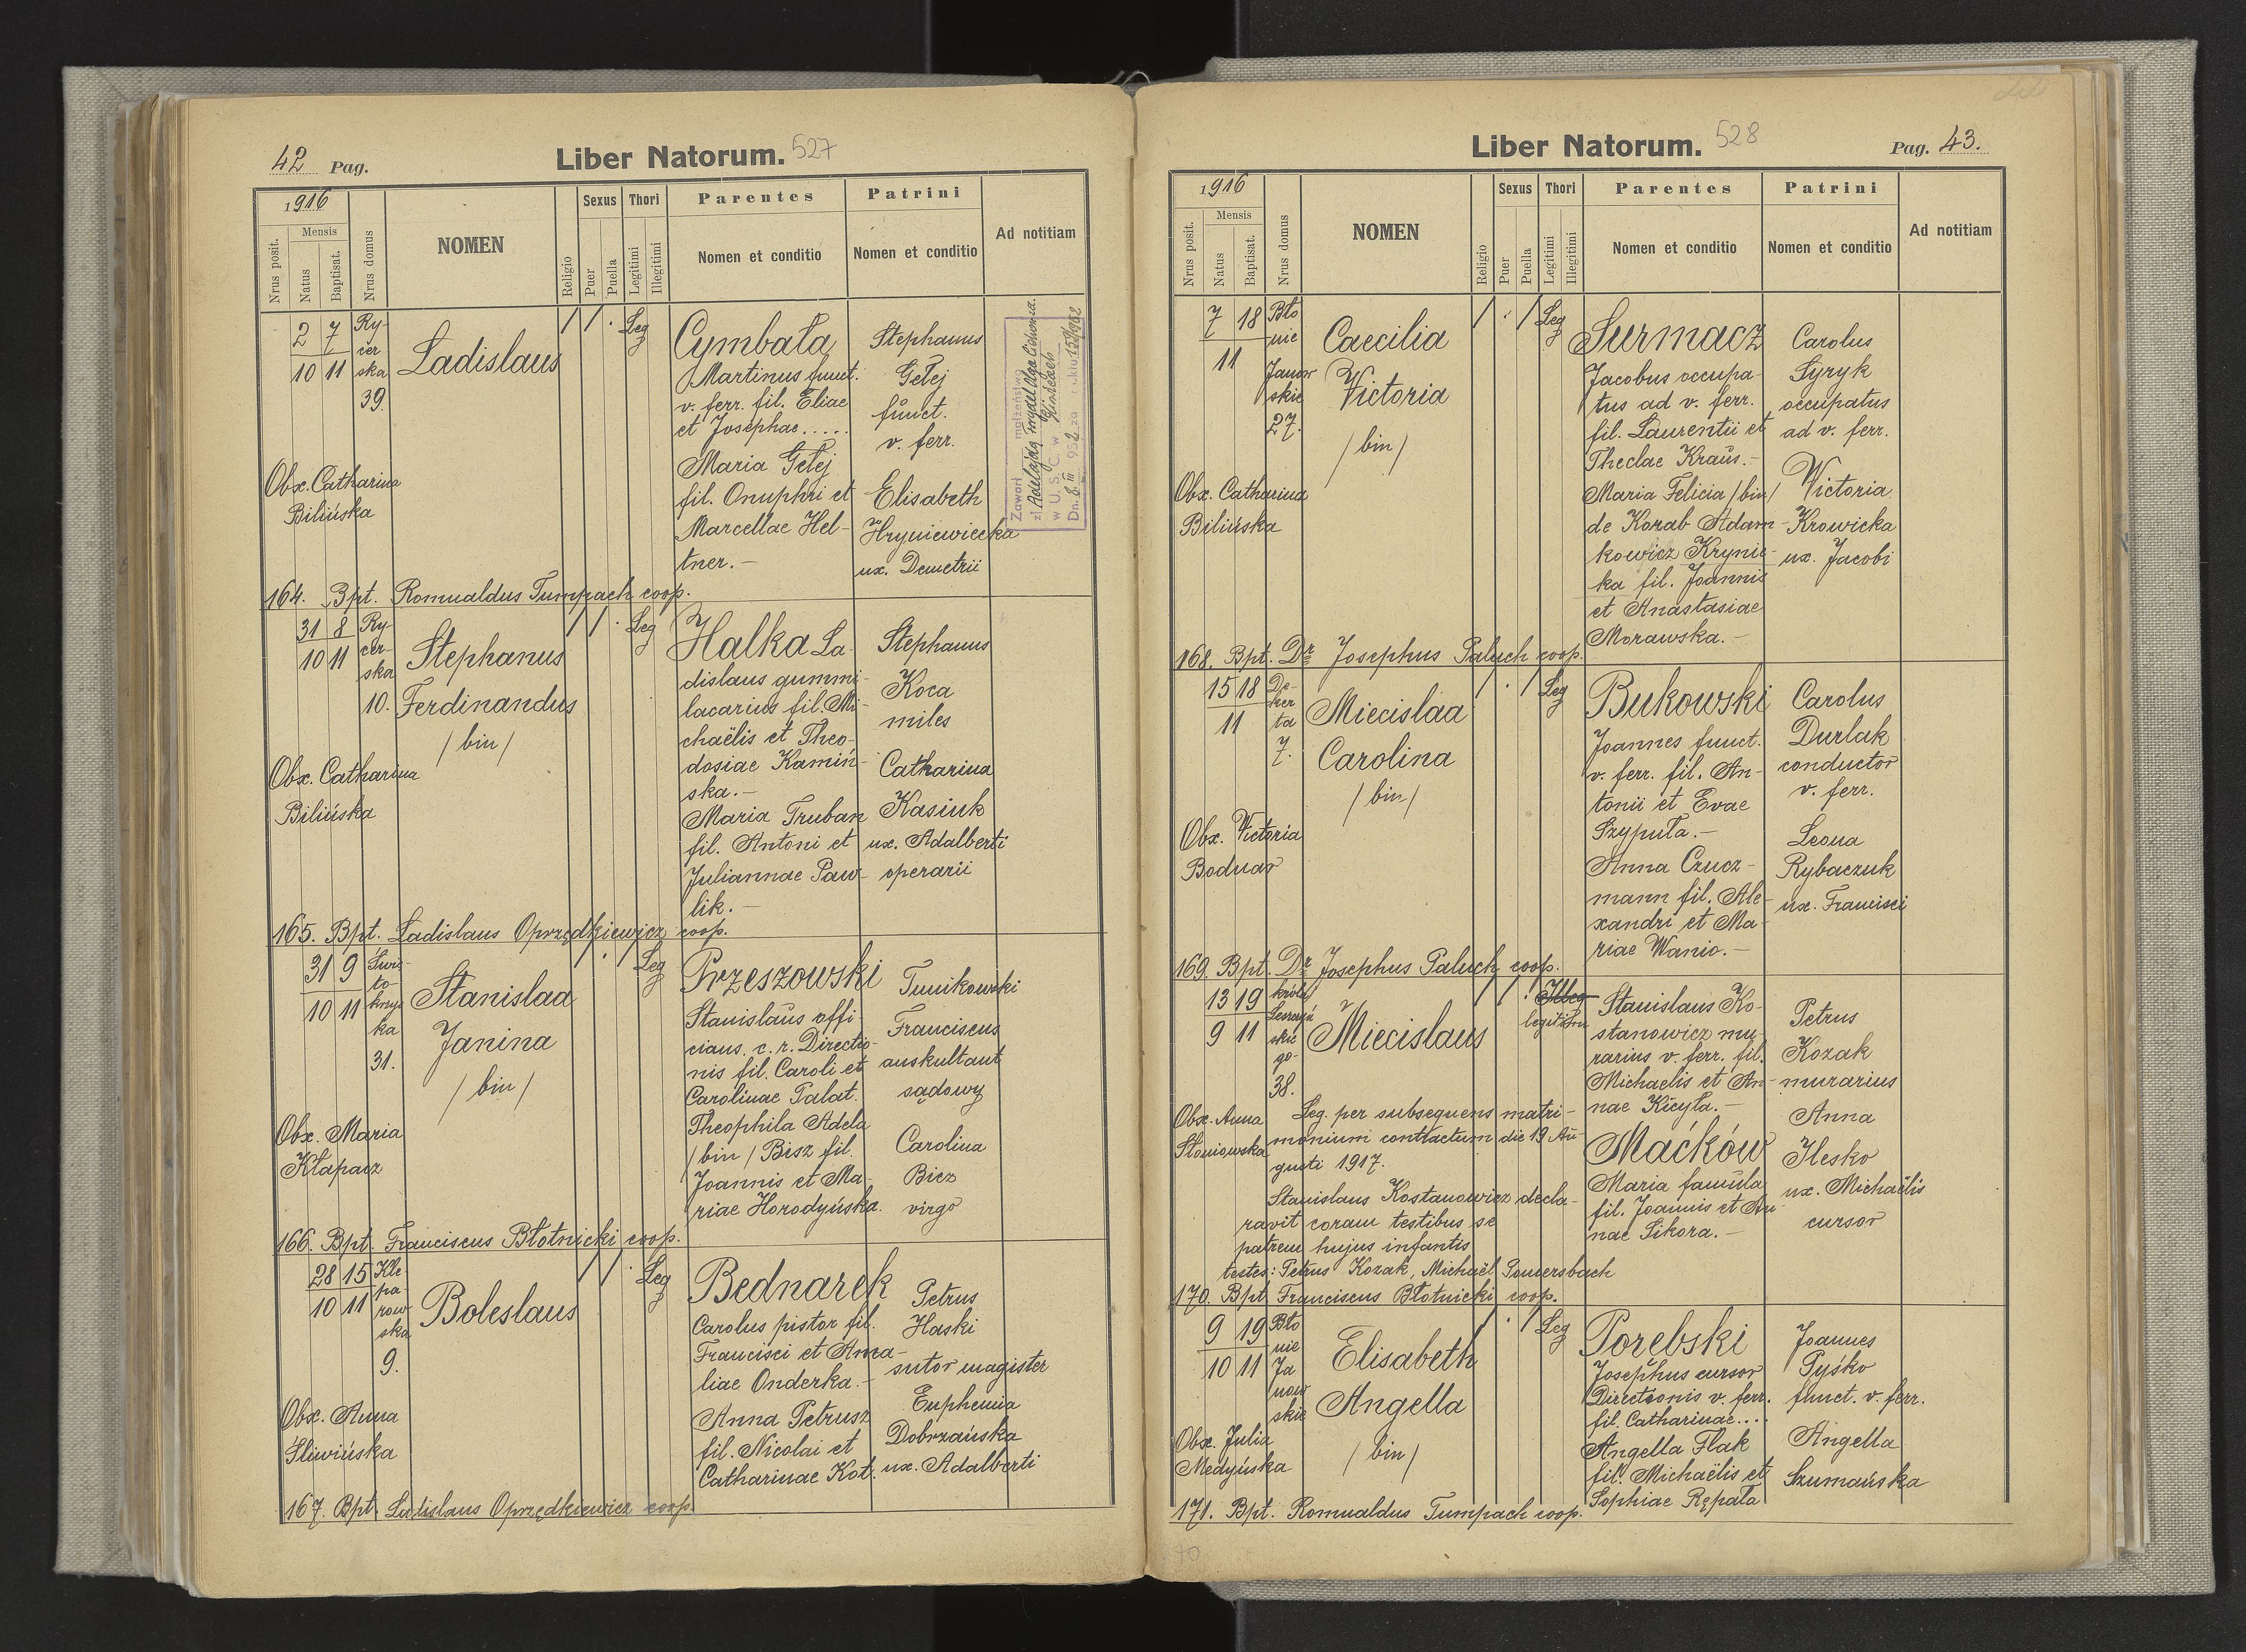 42 Pag.
Liber Natorum. 527
1916
Nrus posit.
Mensis
Natus
Baptisat.
Nrus domus
NOMEN
Religio
Sexus
Puer
Puella
Thori
Legitimi
Illegitimi
Parentes
Nomen et conditio
Patrini
Nomen et conditio
Ad notitiam
2 7
10 11
Ry-
cer
ska
39.
Ladislaus
Leg
Cymbała
Martinus funct.
v. ferr. fil. Eliae
et Josephae.....
Maria Gełej
fil. Onuphri et
Marcellae Hel-
tner.-
Stephanus
Gełej
funct.
v. ferr.
Elisabeth
Hryniewiecka
ux. Demetrii
Zawarł małżeństwo
w U. S. C. w
Obx. Catharina
Bilińska
164. Bpt. Romualdus Tumpach coop.
31 8
10 11
Ry-
cer-
ska
10.
Stephanus
Ferdinandus
/bin/
Leg
Halka La-
dislaus gummi-
lacarius fil. Mi-
chaëlis et Theo-
dosiae Kamiń-
ska.-
Maria Truban
fil. Antoni et
Juliannae Paw-
lik.-
Stephanus
Koca
miles
Catharina
Kasiuk
ux. Adalberti
operarii
Obx. Catharina
Bilińska
165. Bpt. Ladislaus Oprzędkiewicz coop.
31 9
10 11
Świę-
to-
krzys
ka
31.
Stanislaa
Janina
/bin/
Leg
Przeszowski
Stanislaus offi
cians. c. r. Directio-
nis fil. Caroli et
Carolinae Palat.
Theophila Adela
/bin/ Bisz fil.
Joannis et Ma-
riae Horodyńska.
Tunikowski
Franciscus
auskultant
sądowy
Carolina
Biez
virgo
Obx. Maria
Kłapacz
166. Bpt. Franciscus Błotnicki coop.
28 15
10 11
Kle
pa-
row
ska
9.
Boleslaus
Leg
Bednarek
Carolus pistor fil.
Francisci et Ama-
liae Onderka.-
Anna Petrusz
fil. Nicolai et
Catharinae Kot.
Petrus
Haski
sutor magister
Euphemia
Dobrzańska
ux. Adalberti
Obx. Anna
Śliwińska
167. Bpt. Ladislaus Oprzędkiewicz coop.
Liber Natorum. 528
Pag. 43.
1916
Nrus posit.
Mensis
Natus
Baptisat.
Nrus domus
NOMEN
Religio
Sexus
Puer
Puella
Thori
Legitimi
Illegitimi
Parentes
Nomen et conditio
Patrini
Nomen et conditio
Ad notitiam
7 18
11
Bło
nie
Janow
skie
27.
Caecilia
Victoria
/bin/
Leg
Surmacz
Jacobus occupa-
tus ad v. ferr.
fil. Laurentii et
Theclae Kraus.-
Maria Felicia /bin/
de Korab Adam-
kowicz Krynic-
ka fil. Joannis
et Anastasiae
Morawska.-
Carolus
Syryk
occupatus
ad v. ferr.
Victoria
Krowicka
ux. Jacobi
Obx. Catharina
Bilińska
168. Bpt. Dr Josephus Paluch coop.
15 18
11
De-
ker
ta
7.
Miecislaa
Carolina
/bin/
Leg
Bukowski
Joannes funct.
v. ferr. fil. An-
tonii et Evae
Szypuła.-
Anna Czucz-
mann fil. Ale-
xandri et Ma-
riae Wanio.-
Carolus
Durlak
conductor
v. ferr.
Leona
Rybaczuk
ux. Francisci
Obx. Victoria
Bodnar
169. Bpt. Dr Josephus Paluch coop.
13 19
9 11
króla
Leszczyń
skie
go-
38.
Miecislaus
Illeg
Stanislaus Ko-
stanowicz mu-
rarius v. ferr. fil.
Michaelis et An-
nae Kicyła.-
Maćków
Maria famula
fil. Joannis et An-
nae Sikora.-
Petrus
Kozak
murarius
Anna
Ilesko
ux. Michaëlis
cursor
Obx. Anna
Słoniowska
Leg. per subsequens matri-
monium contractum die 19 Au-
gusti 1917.
Stanislaus Kostanowicz decla-
ravit coram testibus se
patrem hujus infantis
testes: Petrus Kozak, Michaël Somersbach
170. Bpt Franciscus Błotnicki coop.
9 19
10 11
Bło
nie
Ja
now
skie
Elisabeth
Angella
/bin/
Leg
Porebski
Josephus cursor
Directionis v. ferr.
fil. Catharinae....
Angella Flak
fil. Michaëlis et
Sophiae Rępała
Joannes
Pyśko
funct. v. ferr.
Angella
Szumańska
Obx. Julia
Medyńska
171. Bpt. Romualdus Tumpach coop.